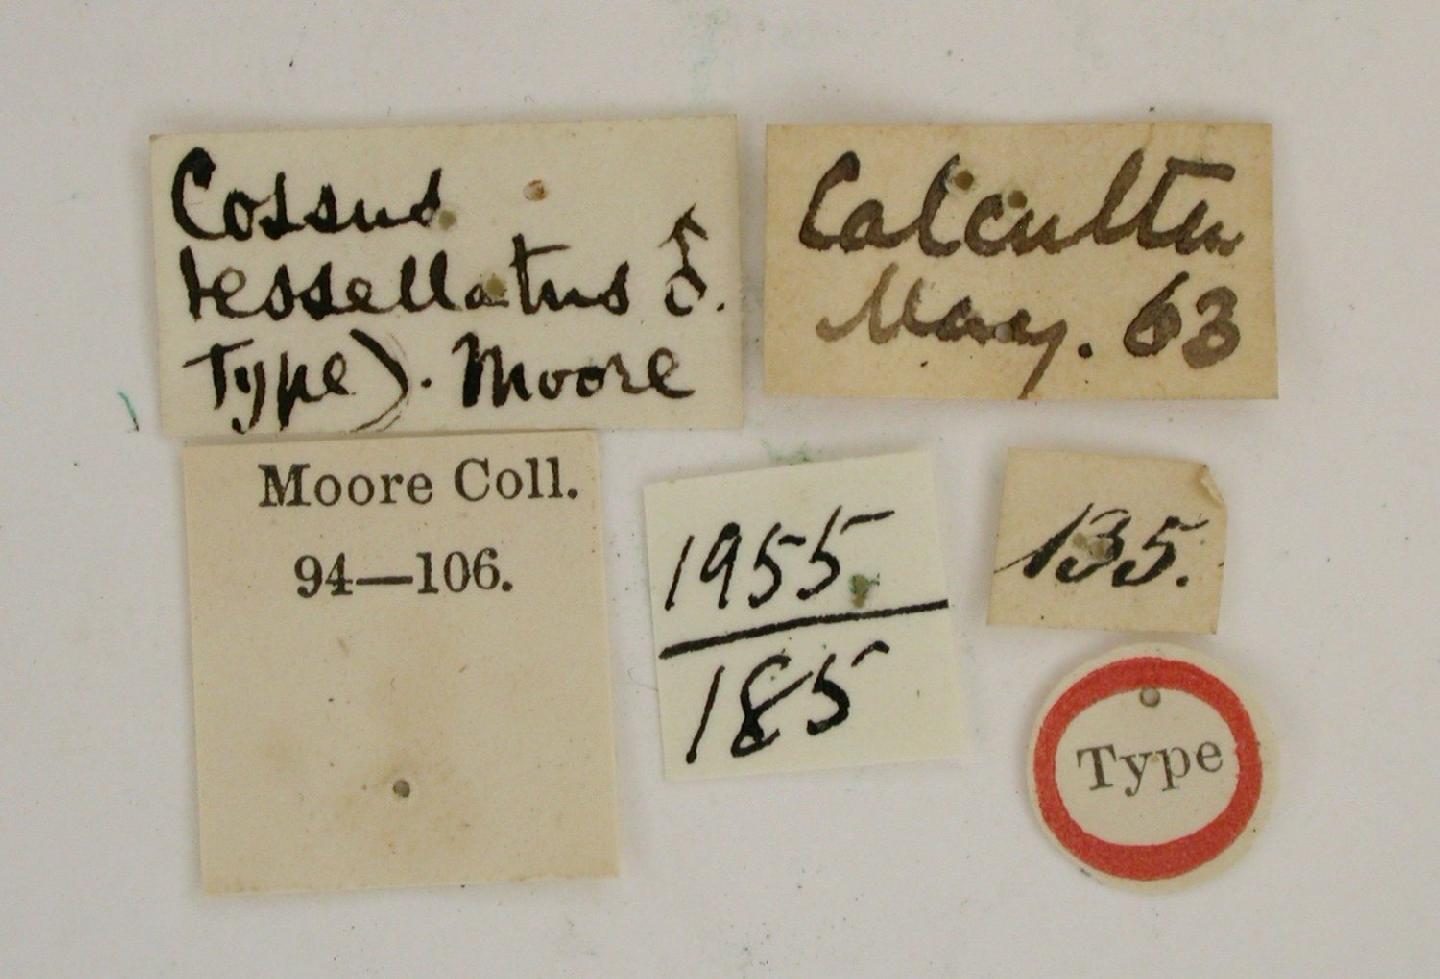 Cossus
tessellatus ♂.
Type). Moore
Calcutta
May. 63
Moore Coll.
94—106.
1955
185
135.
Type